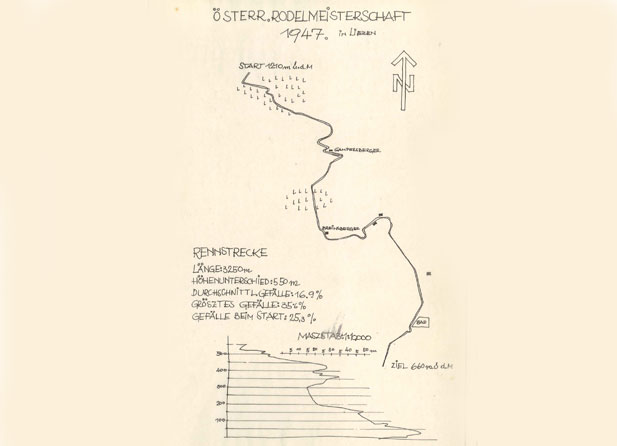 ÖSTERR. RODELMEISTERSCHAFT
1947. in LIEZEN
START 1210 m ü.d.M
N
GAMPERSBERGER
BREINSBERGER
RENNSTRECKE
LÄNGE: 3250 m
HÖHENUNTERSCHIED: 550 m
DURCHSCHNITTL. GEFÄLLE: 16.9 %
GRÖSZTES GEFÄLLE: 35%
GEFÄLLE BEIM START: 25,3 %
BAD
ZIEL 660 m ü.d.M
MASZSTAB: 1:12000
500
400
300
200
100